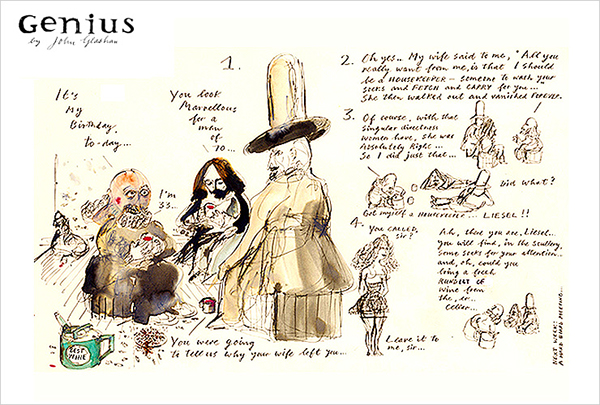 Genius
by John Glashan
1.
It's
My
Birthday
to-day...
You look
Marvellous
for a
man
of
70...
I'm
33...
BEST
WINE
You were going
to tell us why your wife left you...
2. Oh yes.. My wife said to me, "All you
really want from me, is that I should
be a HOUSEKEEPER — someone to wash your
socks and FETCH and CARRY for you...
She then walked out and vanished FOREVER.
3. Of course, with that
singular directness
women have, she was
Absolutely Right...
So I did just that...
Did what?
Got myself a HOUSEKEEPER... LIESEL!!
4. You CALLED,
Sir?
Ah, there you are, Liesel...
You will find, in the scullery,
some socks for your attention..
and, oh, could you
bring a fresh
RUNDLET OF
Wine from
the, er..
Cellar...
Leave it to
me, sir...
NEXT WEEK: